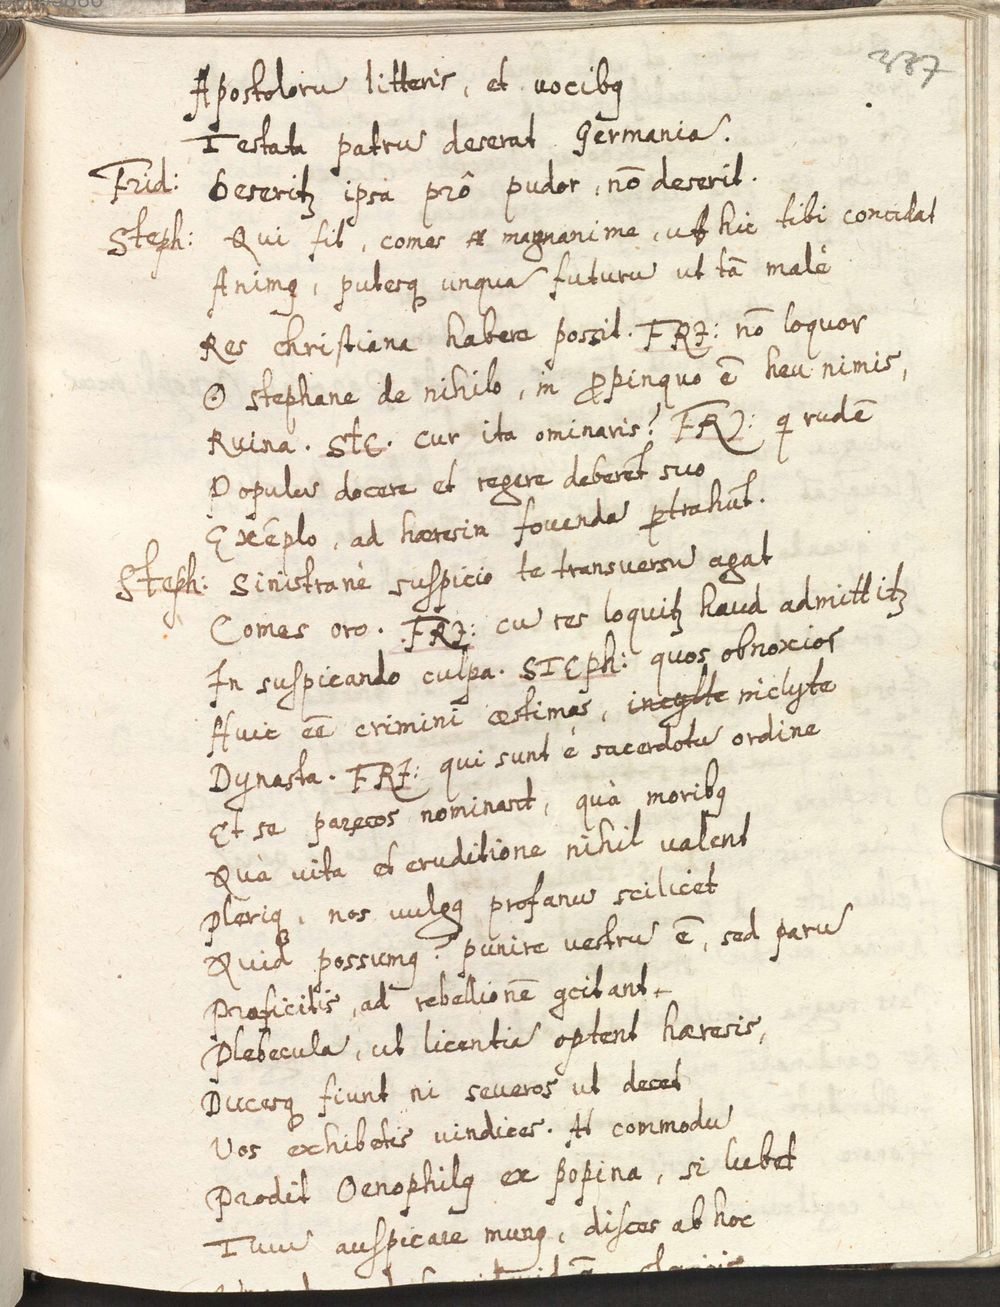 387
Apostoloru litteris, et uocibq
Testata patru deserat Germania.
Frid: Deseritz ipsa prô pudor, nō deserit.
Steph: Qui fit, comes magnanime, ut hic tibi concidat
Animq, putesq unqua futuru ut tā malè
Res christiana habere possit. FRI: nō loquor
O stephane de nihilo, in ꝓpinquo ē heu nimis,
Ruina. StE. cur ita ominaris? FRI: q rudē
Populu docere et regere deberēt suo
Exēplo, ad hæresin fouenda ꝑtrahūt.
Steph: Sinistranè suspicio te transuersu agat
Comes oro. FRI: cu res loquitz haud admittitz
In suspicando culpa. STEph: quos obnoxios
Huic eē crimini æstimas, incylte inclyte
Dynasta. FRI: qui sunt è sacerdotu ordine
Et se parecos nominant, quà moribq
Quà uita et eruditione nihil ualent
Pleriq, nos uulgq profanu scilicet
Quid possumq? punire uestru ē, sed paru
Proficitis, ad rebellionē ꝯcitant
Plebecula, ut licentia optent hæresis,
Ducesq fiunt ni seueros ut decet
Uos exhibetis uindices. At commodu
Prodit Oenophilq ex popina, si lubet
Tuu auspicare munq, disces ab hoc